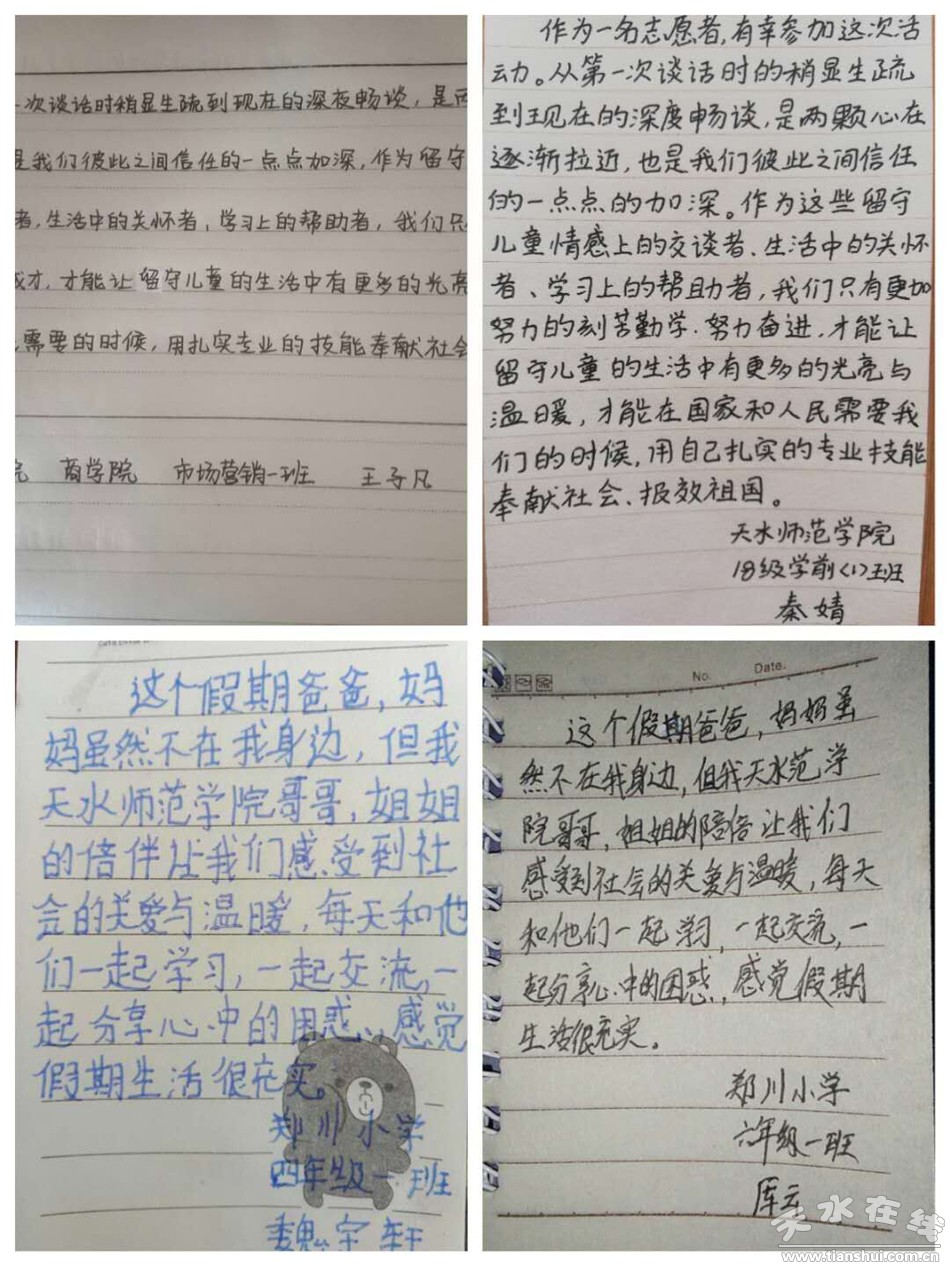 一次谈话时稍显生疏到现在的深夜畅谈，是两
是我们彼此之间信任的一点点加深，作为留守
者，生活中的关怀者、学习上的帮助者，我们只
成才，才能让留守儿童的生活中有更多的光亮
需要的时候，用扎实专业的技能奉献社会
院 商学院 市场营销一班 王子凡
作为一名志愿者,有幸参加这次活
动。从第一次谈话时的稍显生疏
到现在的深度畅谈,是两颗心在
逐渐拉近,也是我们彼此之间信任
的一点点的加深。作为这些留守
儿童情感上的交谈者、生活中的关怀
者、学习上的帮助者,我们只有更加
努力的刻苦勤学.努力奋进,才能让
留守儿童的生活中有更多的光亮与
温暖,才能在国家和人民需要我
们的时候,用自己扎实的专业技能
奉献社会、报效祖国。
天水师范学院
18级学前<1>班
秦婧
这个假期爸爸,妈
妈虽然不在我身边,但我
天水师范学院哥哥,姐姐
的倍伴让我们感受到社
会的关爱与温暖,每天和他
们一起学习,一起交流,一
起分享心中的困惑、感觉
假期生活很充实。
郑川小学
四年级一班
魏宇轩
No. Date.
这个假期爸爸,妈妈虽
然不在我身边,但我天水范学
院哥哥,姐姐的陪倍让我们
感受到社会的关爱与温暖,每天
和他们一起学习,一起交流,一
起分享心中的困惑,感觉假期
生活很充实。
郑川小学
六年级一班
厍云
天水在线
www.tianshui.com.cn